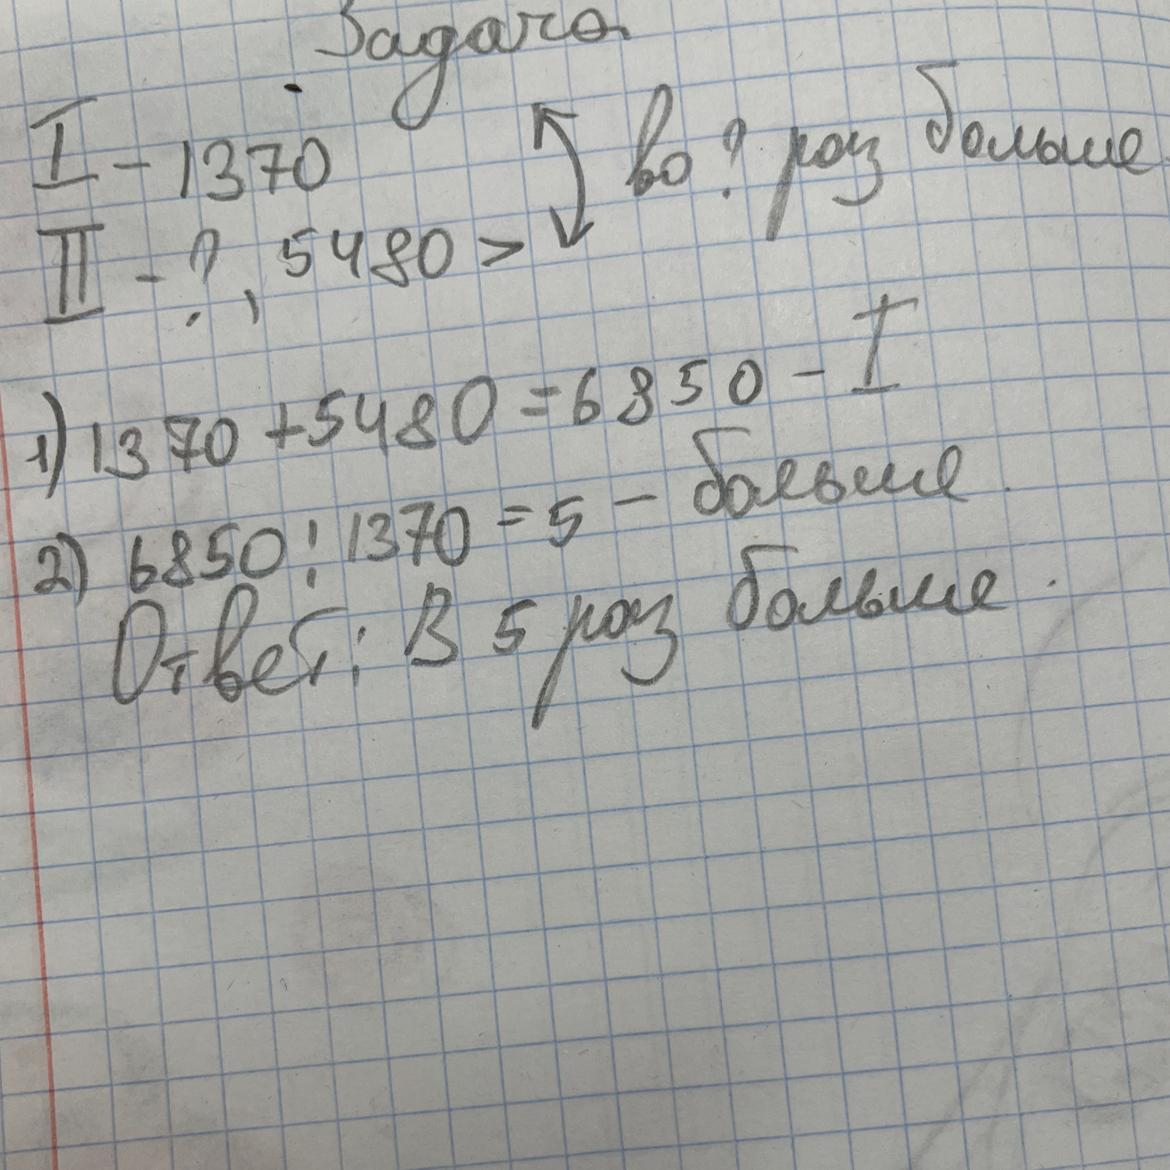 Задача
I - 1370
во ? раз больше
II - ?, 5480 >
1) 1370 + 5480 = 6850 - I
2) 6850 : 1370 = 5 - больше
Ответ: В 5 раз больше.